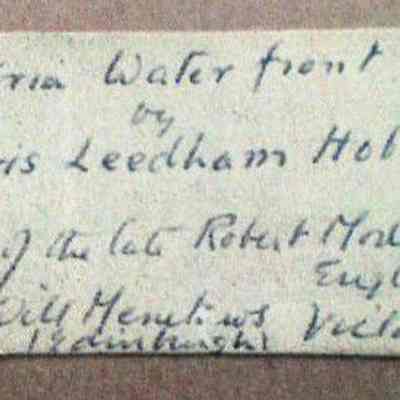 ria Water front
by
is Leedham Hob
of the late Robert Morl
Engl
Will Menelaws Victo
(Edinburgh)